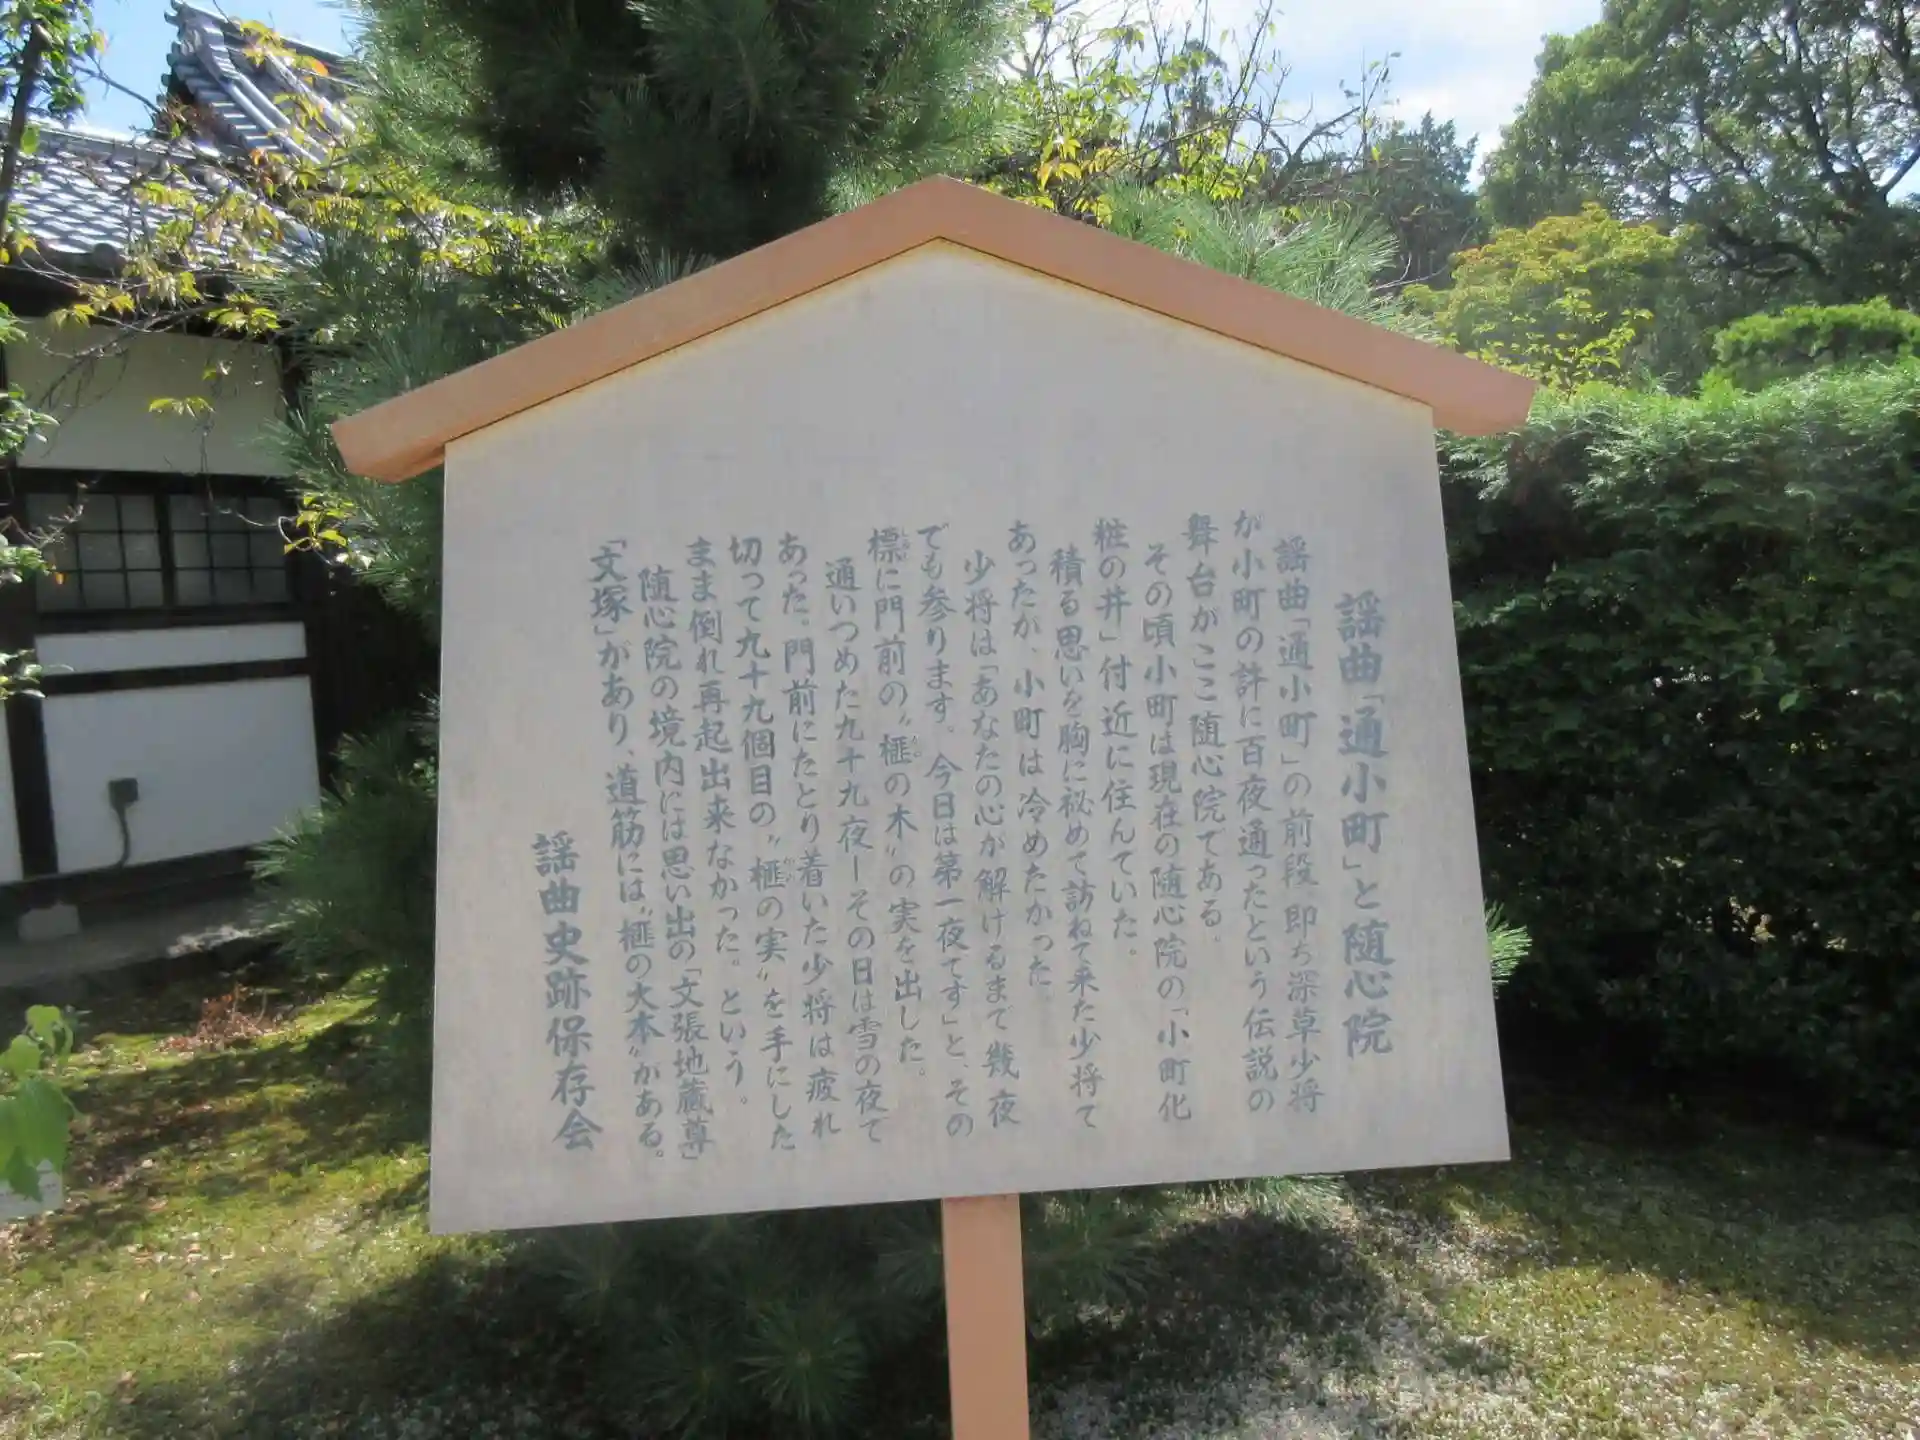 謡曲「通小町」と随心院
謡曲「通小町」の前段即ち深草少将
が小町の許に百夜通ったという伝説の
舞台がここ随心院である。
その頃小町は現在の随心院の「小町化
粧の井」付近に住んでいた。
積る思いを胸に秘めて訪ねて来た少将て
あったが、小町は冷めたかった。
少将は「あなたの心が解けるまで幾夜
でも参ります。今日は第一夜てす」と、その
標に門前の〝榧の木〟の実を出した。
通いつめた九十九夜ーその日は雪の夜て
あった。門前にたとり着いた少将は疲れ
切って九十九個目の〝榧の実〟を手にした
まま倒れ再起出来なかった。という。
随心院の境内には思い出の「文張地蔵尊」
「文塚」があり、道筋には〝榧の大本〟がある。
謡曲史跡保存会